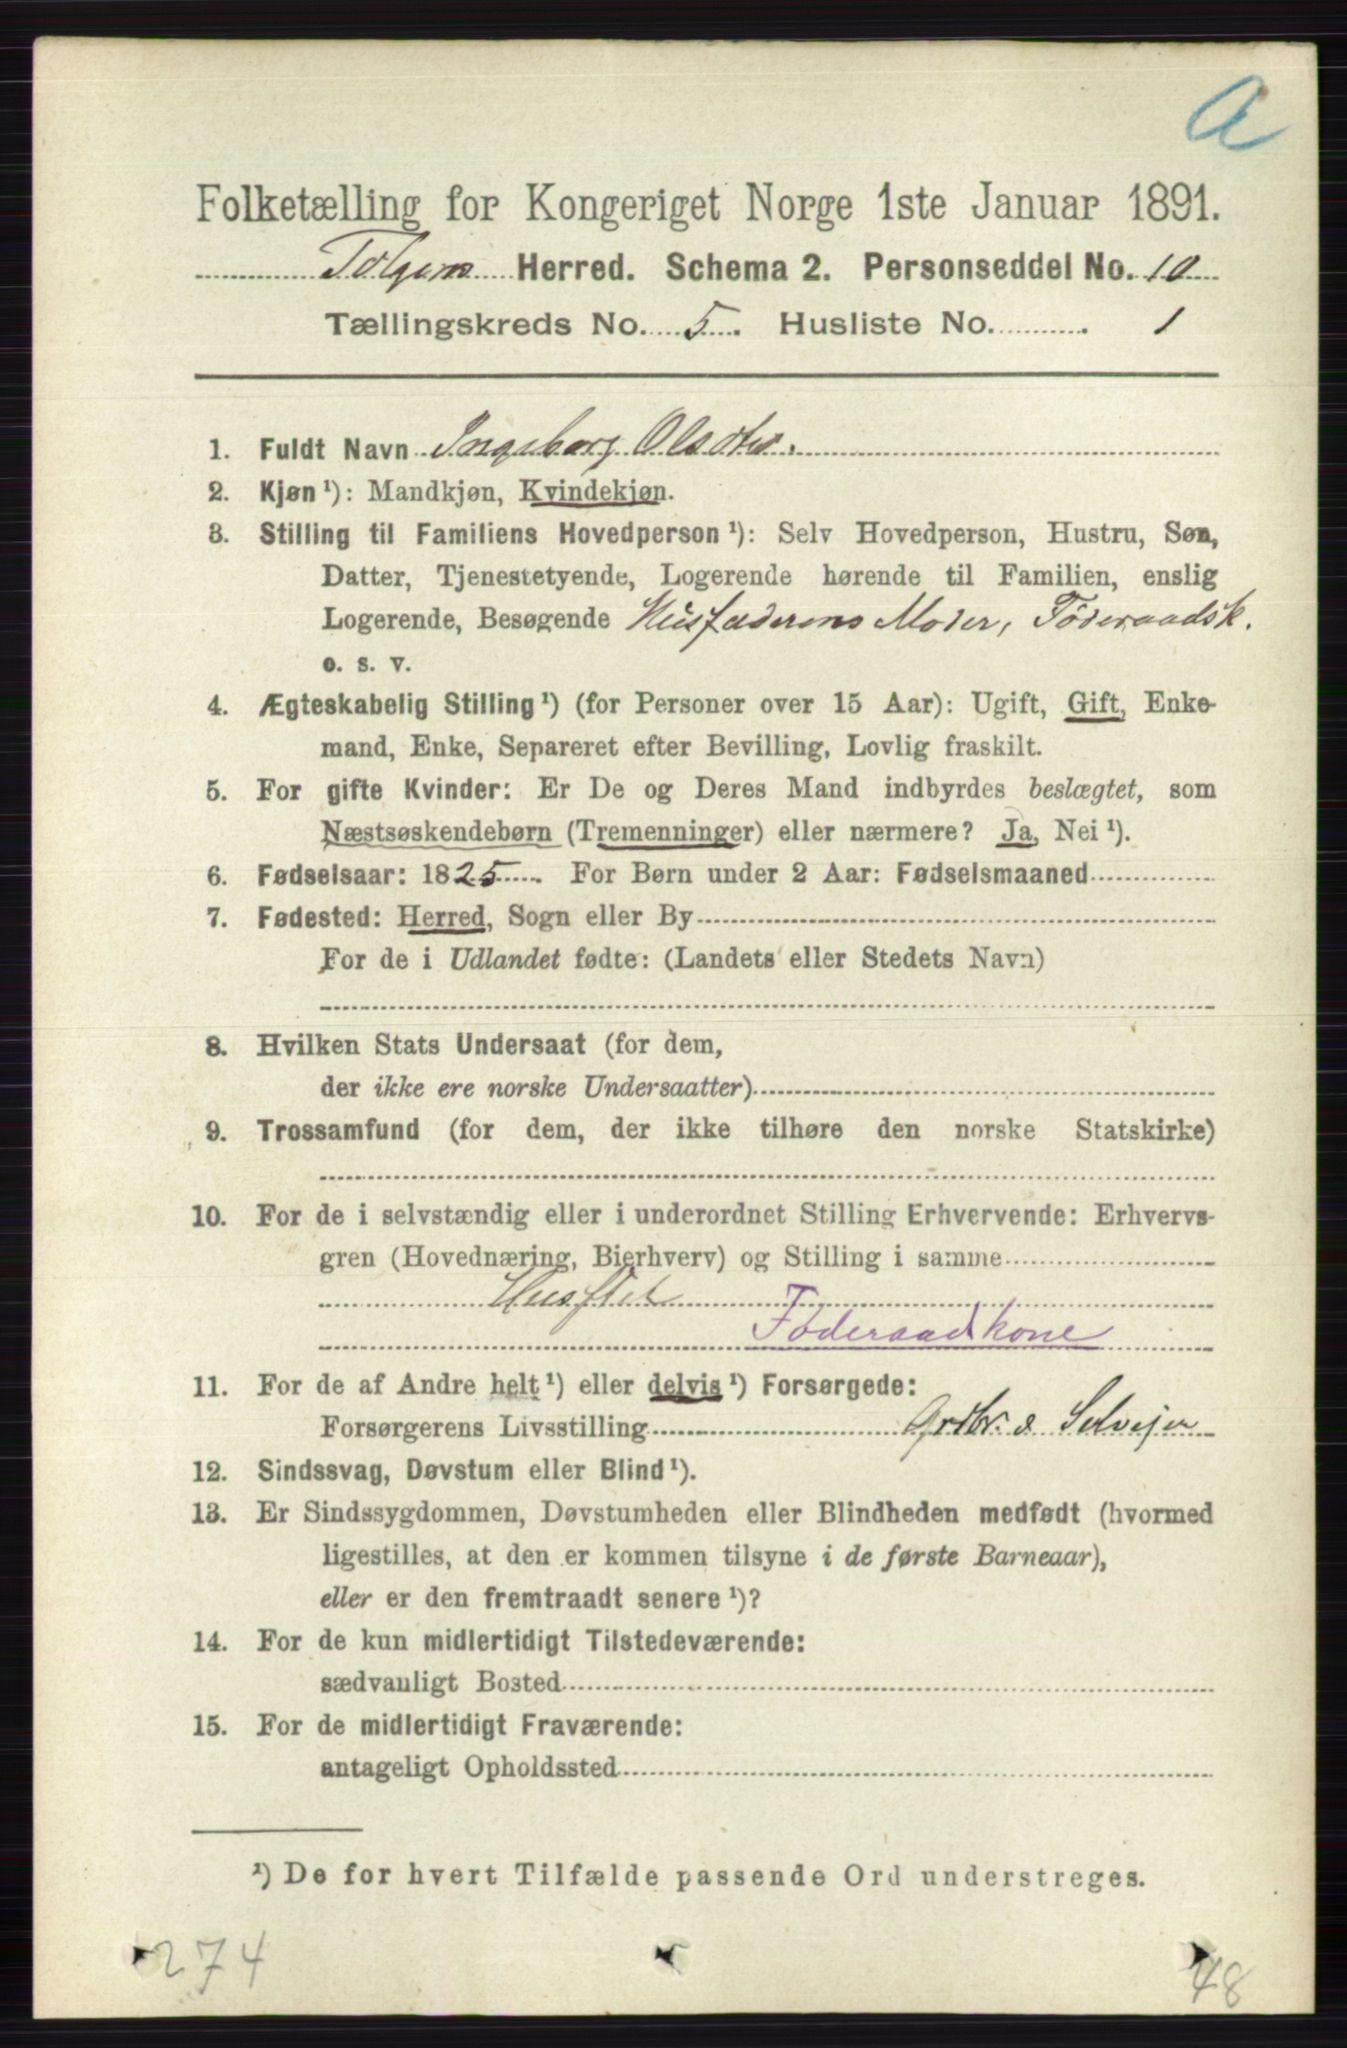 a
Folketælling for Kongeriget Norge 1ste Januar 1891.
Tolgens Herred. Schema 2. Personseddel No. 10
Tællingskreds No. 5. Husliste No. 1
1. Fuldt Navn Ingeborg Olsdtr.
2. Kjøn ¹): Mandkjøn, Kvindekjøn.
3. Stilling til Familiens Hovedperson ¹): Selv Hovedperson, Hustru, Søn,
Datter, Tjenestetyende, Logerende hørende til Familien, enslig
Logerende, Besøgende Husfaderens Moder, Føderaadsk.
o. s. v.
4. Ægteskabelig Stilling ¹) (for Personer over 15 Aar): Ugift, Gift, Enke-
mand, Enke, Separeret efter Bevilling, Lovlig fraskilt.
5. For gifte Kvinder: Er De og Deres Mand indbyrdes beslægtet, som
Næstsøskendebørn (Tremenninger) eller nærmere? Ja, Nei ¹).
6. Fødselsaar: 1825. For Børn under 2 Aar: Fødselsmaaned
7. Fødested: Herred, Sogn eller By
For de i Udlandet fødte: (Landets eller Stedets Navn)
8. Hvilken Stats Undersaat (for dem,
der ikke ere norske Undersaatter)
9. Trossamfund (for dem, der ikke tilhøre den norske Statskirke)
10. For de i selvstændig eller i underordnet Stilling Erhvervende: Erhvervs-
gren (Hovednæring, Bierhverv) og Stilling i samme
Husstel
Føderaadkone
11. For de af Andre helt ¹) eller delvis ¹) Forsørgede:
Forsørgerens Livsstilling Grdbr. & Selvejer
12. Sindssvag, Døvstum eller Blind ¹).
13. Er Sindssygdommen, Døvstumheden eller Blindheden medfødt (hvormed
ligestilles, at den er kommen tilsyne i de første Barneaar),
eller er den fremtraadt senere ¹)?
14. For de kun midlertidigt Tilstedeværende:
sædvanligt Bosted
15. For de midlertidigt Fraværende:
antageligt Opholdssted
¹) De for hvert Tilfælde passende Ord understreges.
274
48